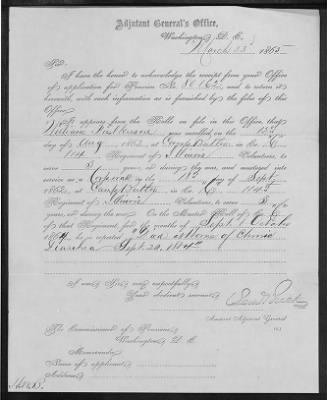 Adjutant General's Office,
Washington, D. C.
March 1865
Sir:
I have the honor to acknowledge the receipt from your Office
of application for Pension No. and to return it
herewith, with such information as is furnished by the files of this
Office.
It appears from the Rolls on file in this Office, that
William was enrolled on the 13th
day of Aug, 1862, at Camp Butler in the
114 Regiment of Illinois Volunteers, to
serve 3 years, or during the war, and mustered into
service as a Corporal on the 18 day of Sept
1862, at Camp Butler, in Co. 114
Regiment of Illinois Volunteers, to serve 3
years, or during the war. On the Muster Roll of Co.
of that Regiment, for the months of Sept & October
1864, he is reported "Died at Home of Chronic
Diarrhea Sept. 1864"
I am, Sir, very respectfully,
Your obedient servant,
Assistant Adjutant General
The Commissioner of Pensions,
Washington, D. C.
Memoranda
Name of applicant
Address